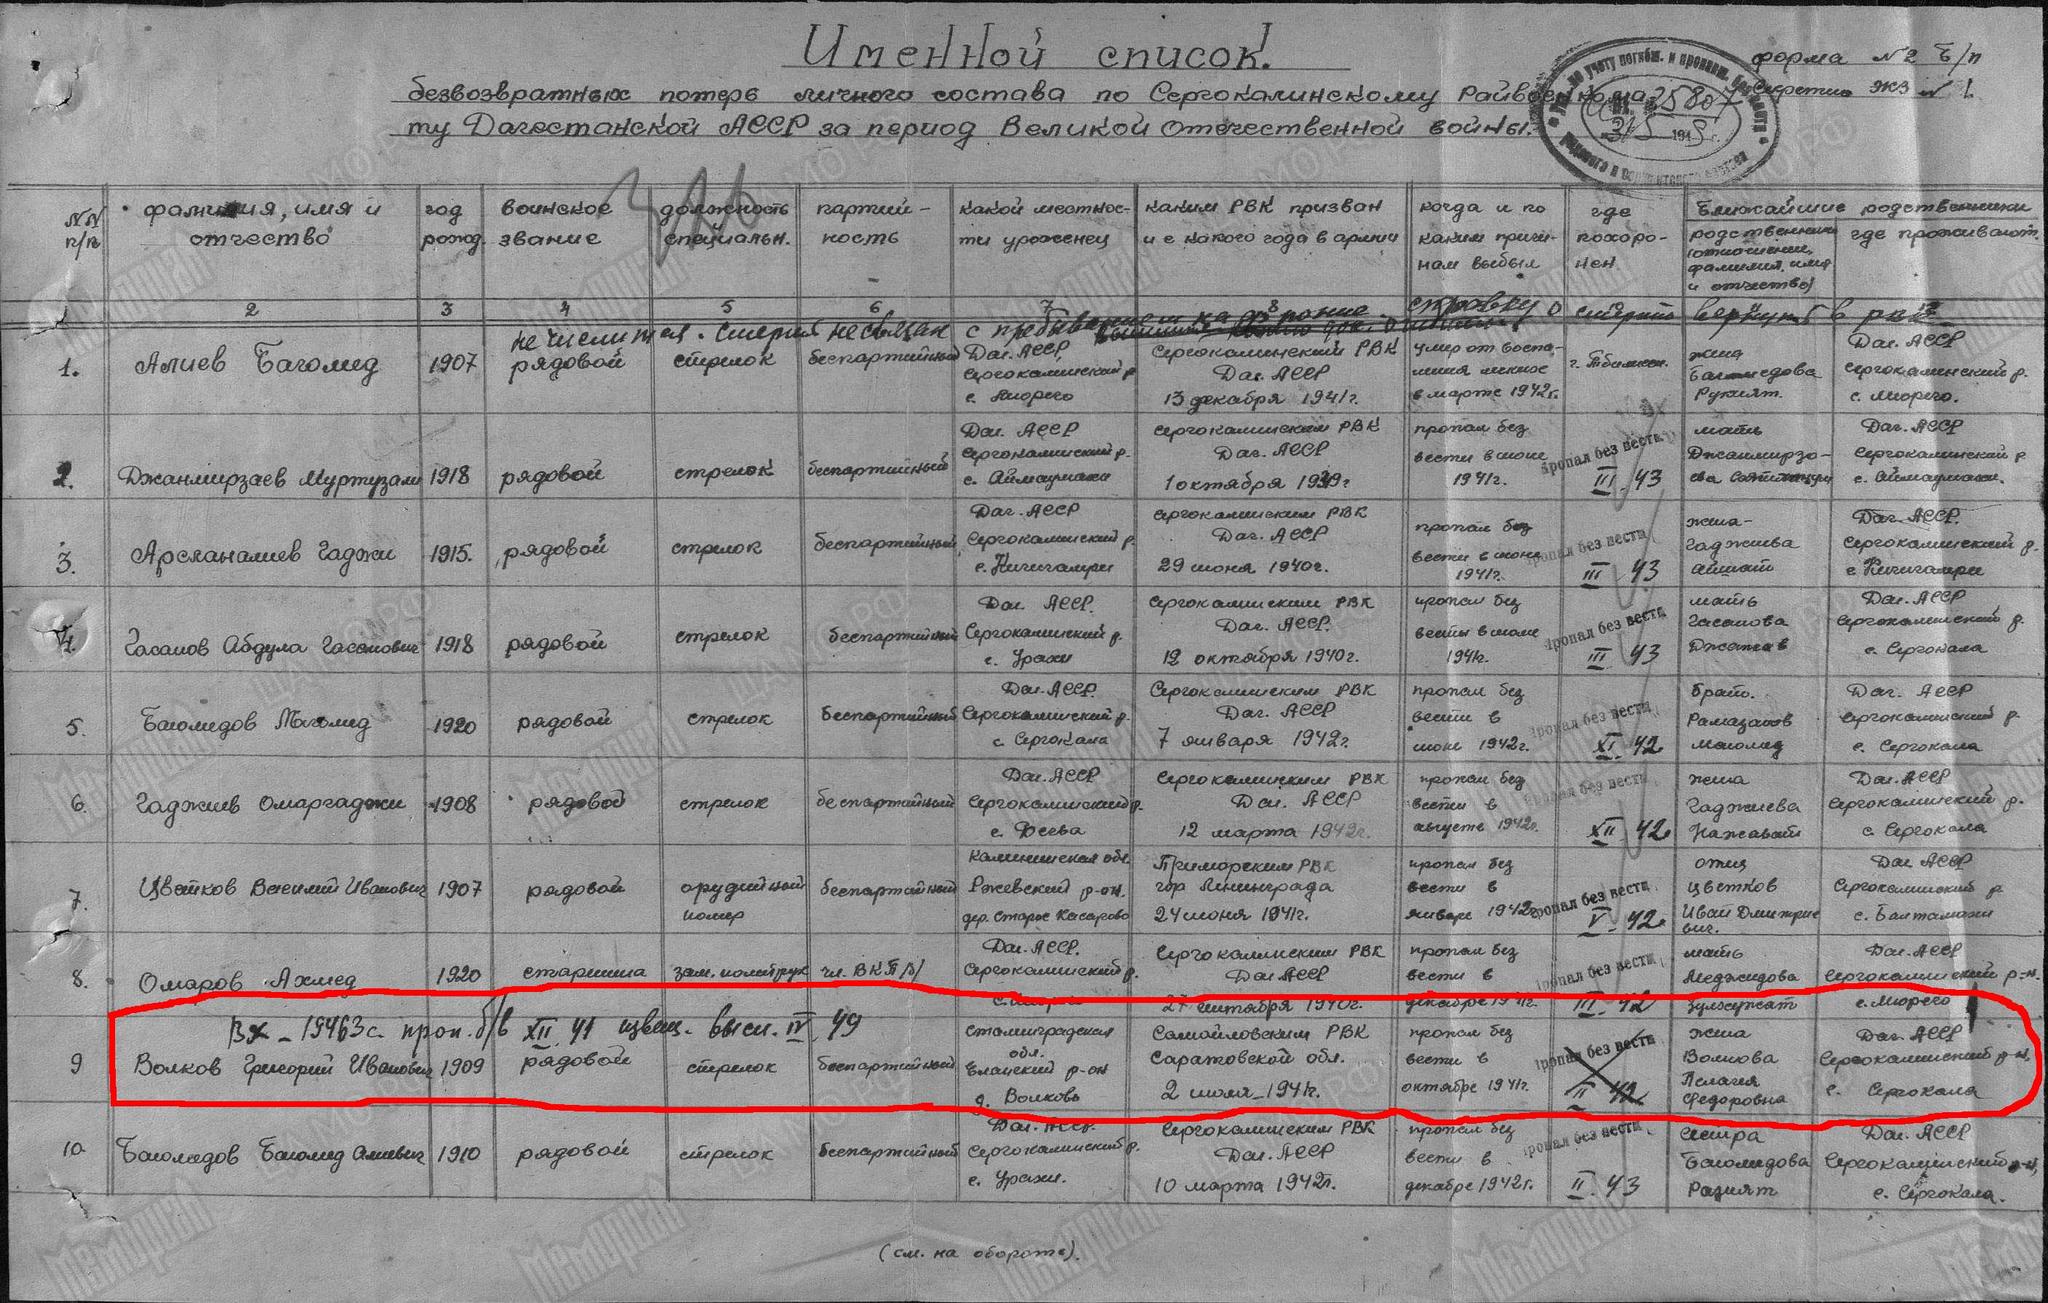 Именной список.
форма №2 Б/п
безвозвратных потерь личного состава по Сергокалинскому Райвоенкома-
ту Дагестанской АССР за период Великой Отечественной войны.
25807
№№ п/п
фамилия, имя и отчество
год рожд.
воинское звание
должность специальн.
партий-ность
какой местнос-ти уроженец
каким РВК призван и с какого года в армии
когда и по каким причи-нам выбыл
где похоро-нен
Ближайшие родственники
родственные отношения, фамилия, имя и отчество
где проживают.
2 3 4 5 6 7 8
не числится. Смерть не связан с пребыванием справку о смерти вернуть в РВК
1. Алиев Багомед 1907 рядовой стрелок беспартийный
Даг. АССР, Сергокалинский р. с. Мюрего
Сергокалинский РВК Даг. АССР 13 декабря 1941г.
умер от воспа-ления легких в марте 1942г.
жена Багомедова Рукият.
Даг. АССР Сергокалинский р. с. Мюрего.
2. Джанмирзаев Муртузали 1918 рядовой стрелок беспартийный
Даг. АССР Сергокалинский р. с. Аймаумахи
Сергокалинским РВК Даг. АССР 1 октября 1939г
пропал без вести в июне 1941г.
пропал без вести III 43
мать Джанмирзо-ева
Даг. АССР Сергокалинский р с. Аймаумахи.
3. Арсланалиев Гаджи 1915. рядовой стрелок беспартийный
Даг. АССР Сергокалинский р. с. Кичигамри
Сергокалинским РВК Даг. АССР 29 июня 1940г.
пропал без вести в июне 1941г.
пропал без вести III 43
жена- Гаджиева Айшат
Даг. АССР. Сергокалинский р. с Кичигамри
4. Гасанов Абдула Гасанович 1918 рядовой стрелок беспартийный
Даг. АССР. Сергокалинский р. с. Урахи
Сергокалинским РВК Даг. АССР. 12 октября 1940г.
пропал без вести в июне 1941г.
пропал без вести III 43
мать Гасанова
Даг. АССР Сергокалинский р. с. Сергокала
5. Багомедов Магомед 1920 рядовой стрелок беспартийный
Даг. АССР. Сергокалинский р. с. Сергокала
Сергокалинским РВК Даг. АССР 7 января 1942г.
пропал без вести в июне 1942г.
пропал без вести XI 42
брат. Рамазанов Магомед
Даг. АССР Сергокалинский р. с. Сергокала
6. Гаджиев Омаргаджи 1908 рядовой стрелок беспартийный
Даг. АССР Сергокалинский р.
Сергокалинским РВК Даг. АССР 12 марта 1942г.
пропал без вести в августе 1942г.
пропал без вести XII 42
жена Гаджиева
Даг. АССР Сергокалинский р. с. Сергокала
7. Цветков Василий Иванович 1907 рядовой орудийный номер беспартийный
Калининская обл. Ржевский р-он.
Приморским РВК гор Ленинграда 24 июня 1941г.
пропал без вести в январе 1942
пропал без вести V 42
отец Цветков Иван Дмитрие вич.
Даг. АССР Сергокалинский р с. Балтамахи
8. Омаров Ахмед 1920 старшина зам. политрук чл. ВКП/б/
Даг. АССР. Сергокалинский р. с. Мюрего
Сергокалинским РВК Даг. АССР 27 сентября 1940г.
пропал без вести в декабре 1941г.
пропал без вести III 42
мать Меджидова Зулжужат
Даг. АССР Сергокалинский р-н. с. Мюрего
Вх - 19463с. проп. б/в XII 41 извещ. высл. IV 49
9 Волков Григорий Иванович 1909 рядовой стрелок беспартийный
Сталинградская обл. Еланский р-он д. Волковь
Самойловским РВК Саратовской обл. 2 июля 1941г.
пропал без вести в октябре 1941г.
пропал без вести II 42
жена Волкова Пелагея Федоровна
Даг. АССР Сергокалинский р-н. с. Сергокала
10 Багомедов Багомед Алиевич 1910 рядовой стрелок беспартийный
Даг. АССР. Сергокалинский р. с. Урахи.
Сергокалинским РВК Даг. АССР 10 марта 1942г.
пропал без вести в декабре 1942г.
пропал без вести II 43
сестра Багомедова Разият
Даг. АССР Сергокалинский р-н, с. Сергокала.
(см. на обороте).